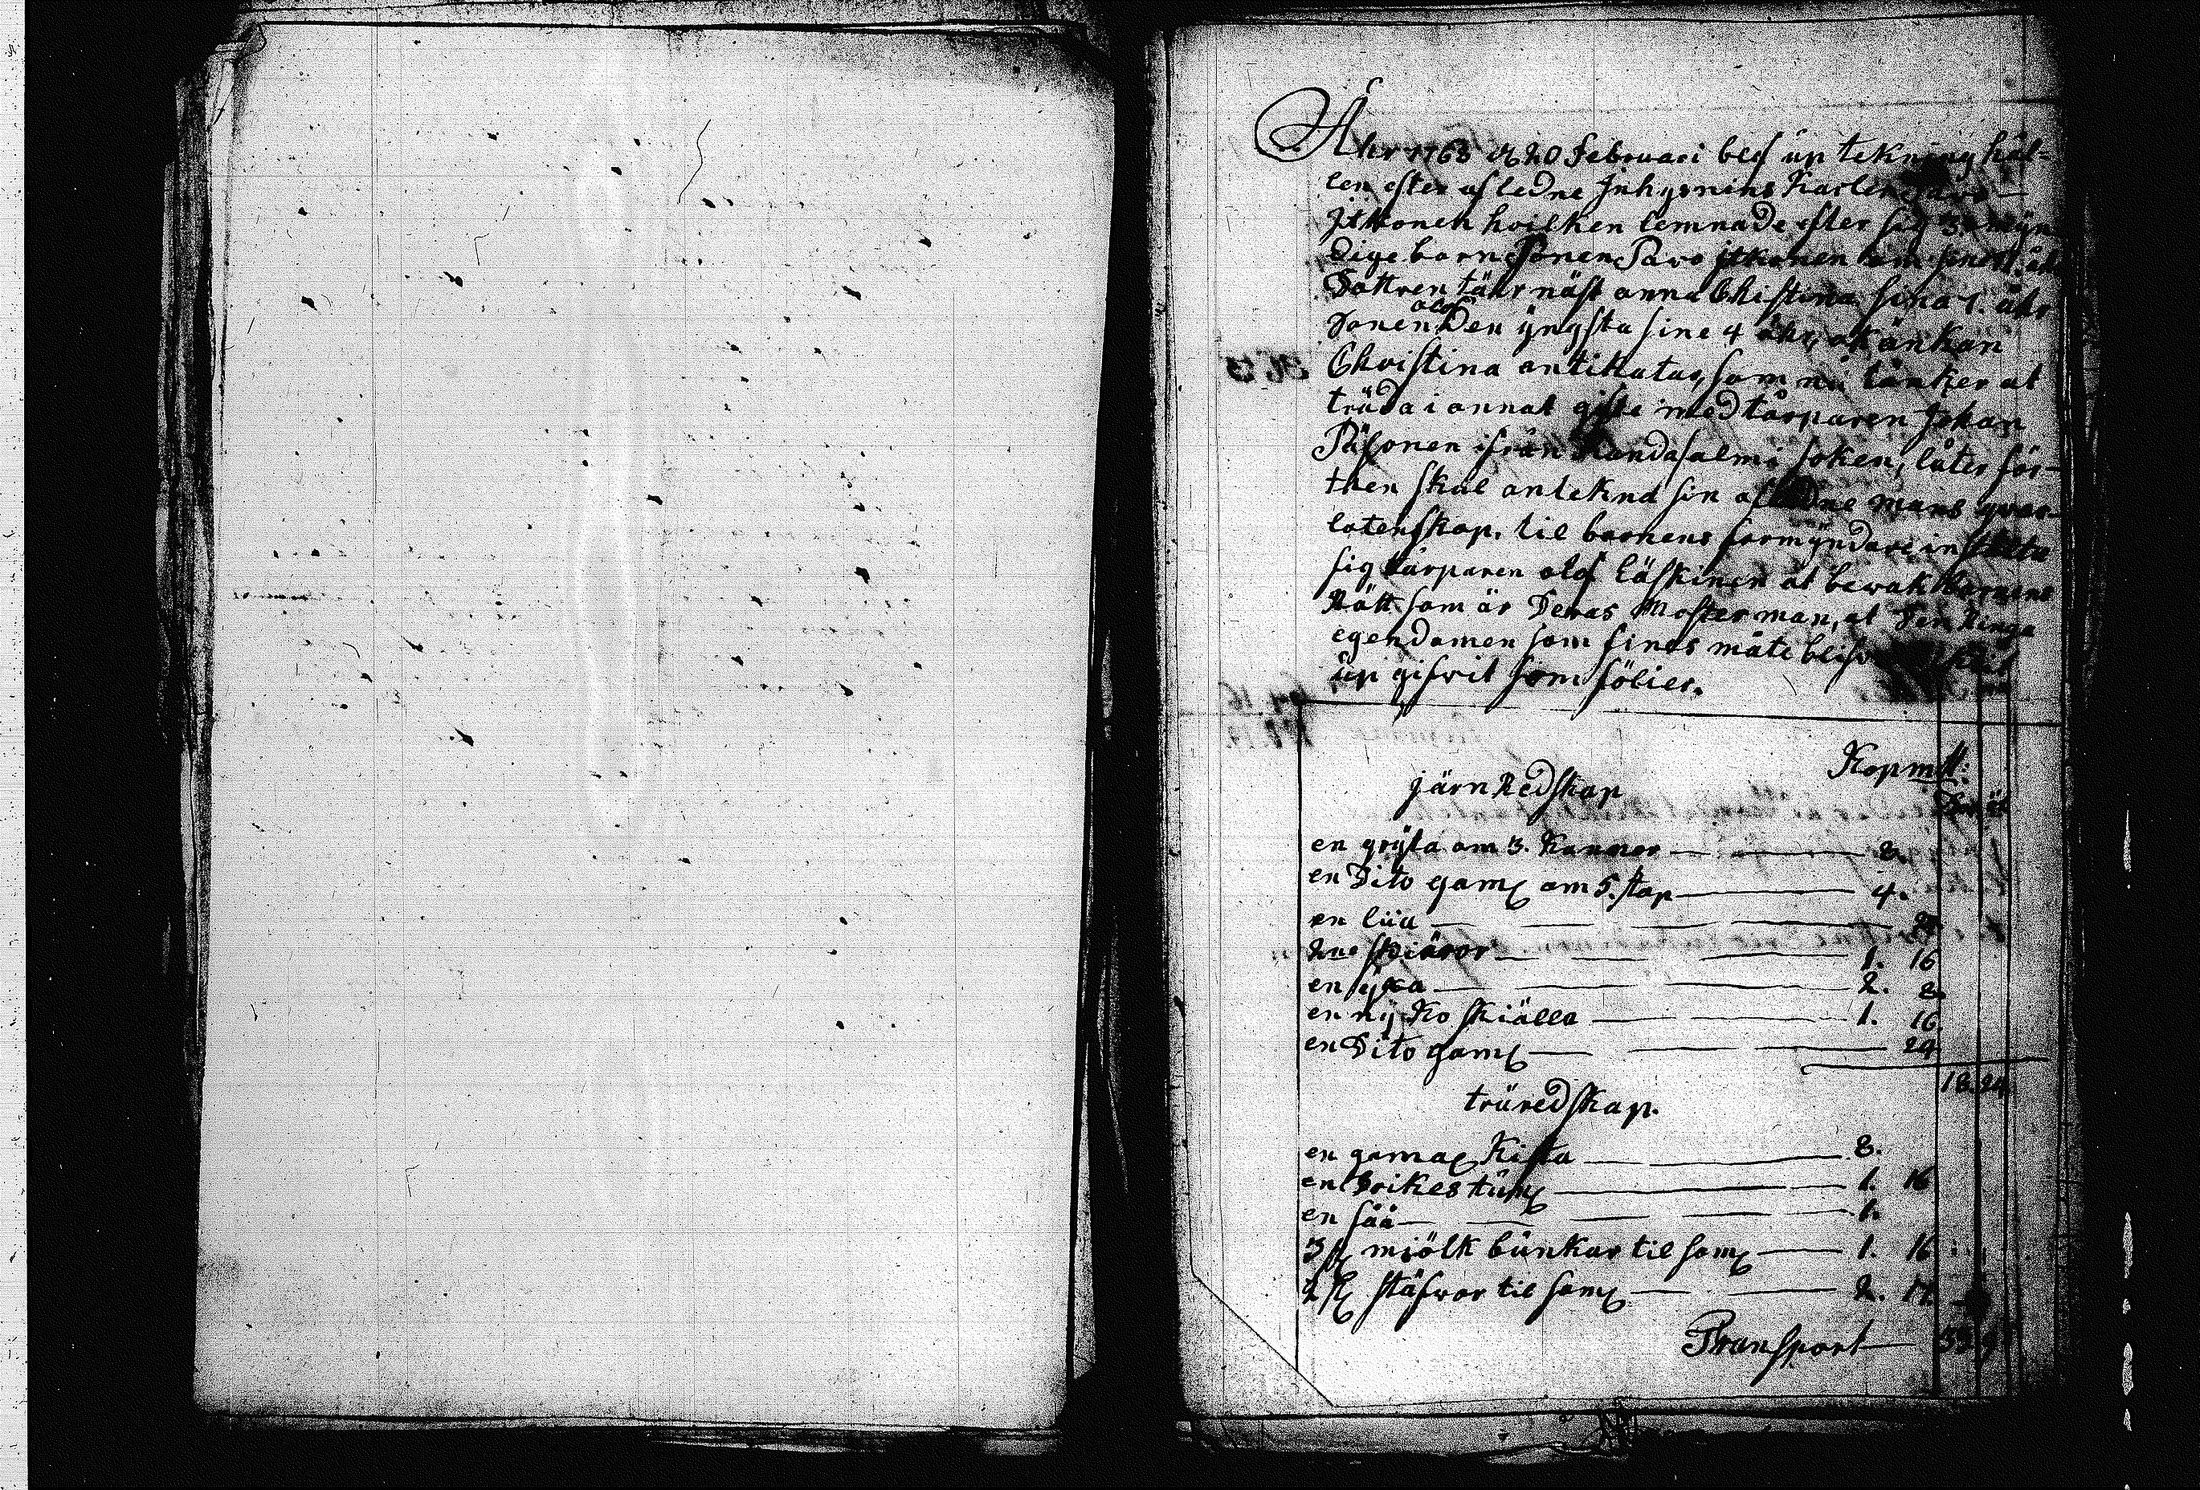 Åhr 1768 d 20 Februari blef up tekning hål=
len efter afledne Inhysnins Karlen Pavo
Itkonen hvilken lemnade efter sig 3. omÿn
dige barn Sonen Pavo itkonen om sine åhr
Dottren tähr näst anna Christina sina 7. åhr
Sonen olof Den ÿngsta sine 4 åhr, ok änkan
Christina antikatar, som nu tänker at
träda i annat gifte med tårparen Johan
Päsonen ifrån Randasalmi soken, låter för-
then skul antekna sin afledne mans qvar-
latenskap. til barnens formÿndare instälte
sig tårparen olof Läskinen at bewak barnens
Rätt som är Deras Moster man, at Den Ringa
egendomen som fines måte blifwa
up gifwit som fölier.
Kopmtt:
järn Redskap
en grÿta om 3. Kannor 8.
en Dito gaml om 5. stop 4.
en liia
2ne skiäror 1. 16
en ÿxa 2. 8.
en nÿ Ko skiälla 1. 16
en Dito gaml 24
18. 24
träredskap.
en gamal Kista 8.
en Drikes tünl 1. 16
en såå 1.
3 st miölk bünkar til saml 1. 16
2 st stäfwor til saml 2. 17.
Transport